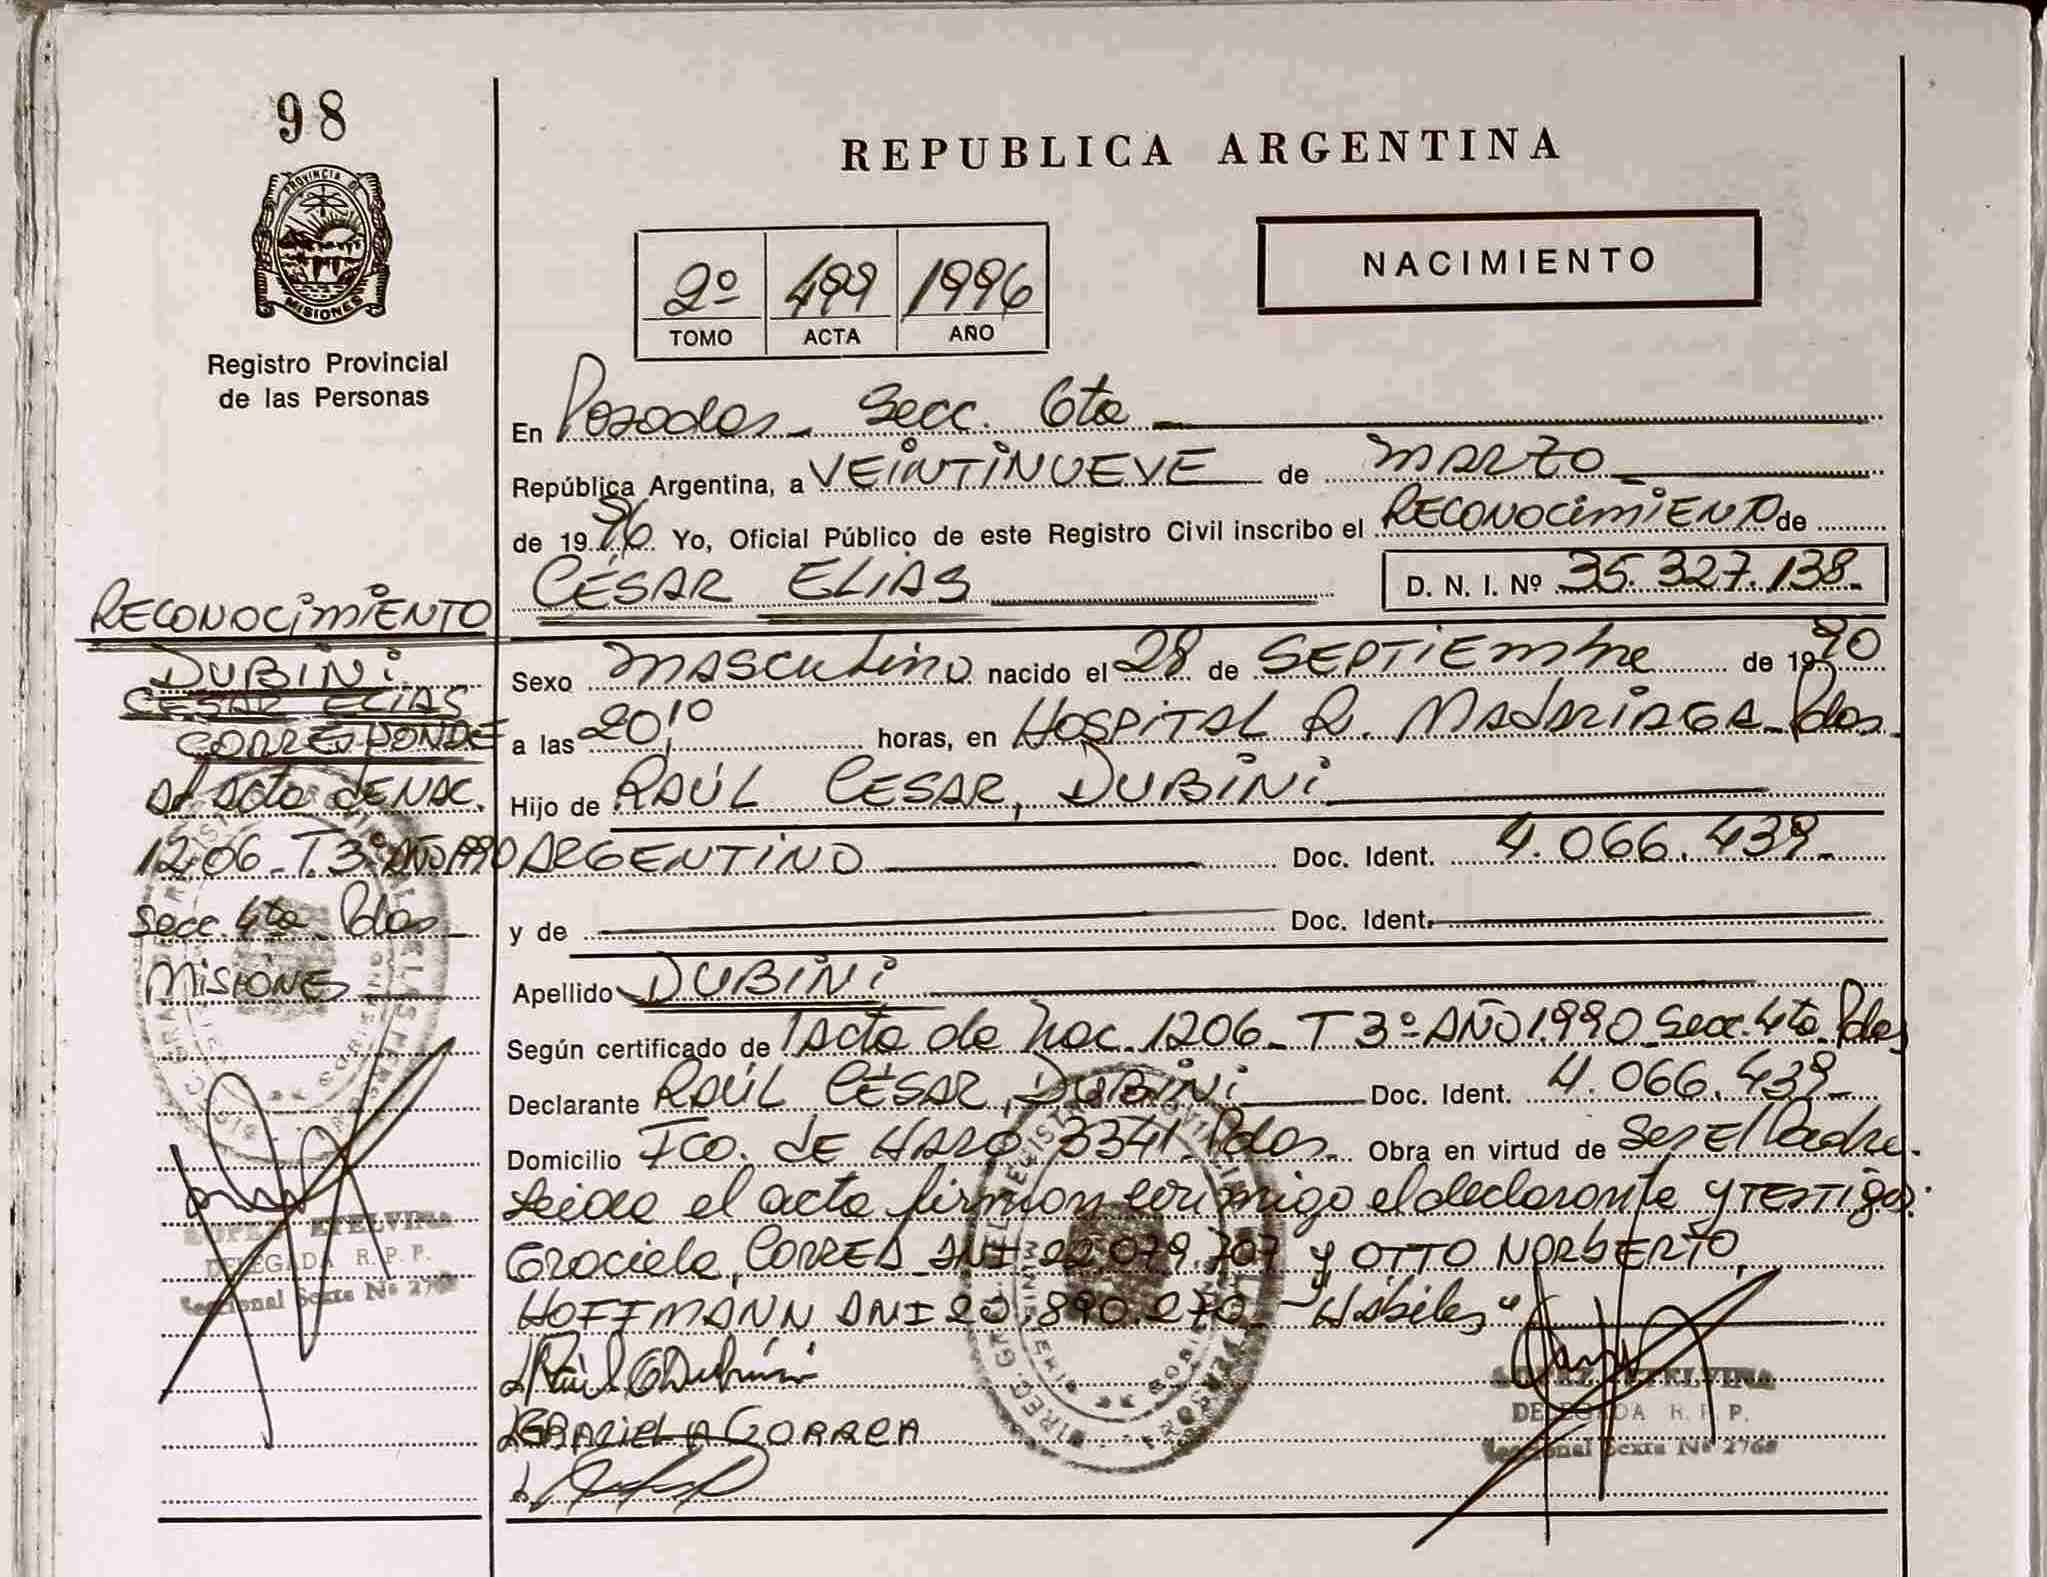 98
PROVINCIA DE
MISIONES
Registro Provincial
de las Personas
RECONOCIMIENTO
DUBINI
CESAR ELIAS
CORRESPONDE
al acta de NAC.
1206_T.3º AÑO 1990
Secc. 4ta_Pdas_
MISIONES
DELEGADA R. P. P.
Seccional Sexta Nº 276
REPUBLICA ARGENTINA
2º 499 1996
TOMO ACTA AÑO
NACIMIENTO
En Posadas_ Secc. 6ta
República Argentina, a VEINTINUEVE de MARZO
de 1996 Yo, Oficial Público de este Registro Civil inscribo el RECONOCIMIENTO de
CÉSAR ELIAS D. N. I. Nº 35.327.138_
Sexo MASCULINO nacido el 28 de SEPTIEMbre de 1990
a las 20,10 horas, en HOSPITAL R. MADARIAGA_Pdas.
Hijo de RAÚL CESAR, DUBINI
ARGENTINO Doc. Ident. 4.066.439_
y de Doc. Ident.
Apellido DUBINI
Según certificado de Acta de Nac. 1206_ T 3º AÑO 1.990_Secc. 4ta_Pdas
Declarante RAÚL CÉSAR, DUBINI Doc. Ident. 4.066.439_
Domicilio FCO. DE HARO 3341_Pdas. Obra en virtud de Ser El Padre.
Leida el acta firman conmigo el declarante y TESTIGOS:
Graciela, CORREA DNI 22.079.707 y OTTO NORBERTO,
HOFFMANN DNI 20.890.270_"Hábiles"
Raúl C Dubini
GRACIELA CORREA
DELEGADA R. P. P.
Seccional Sexta Nº 276